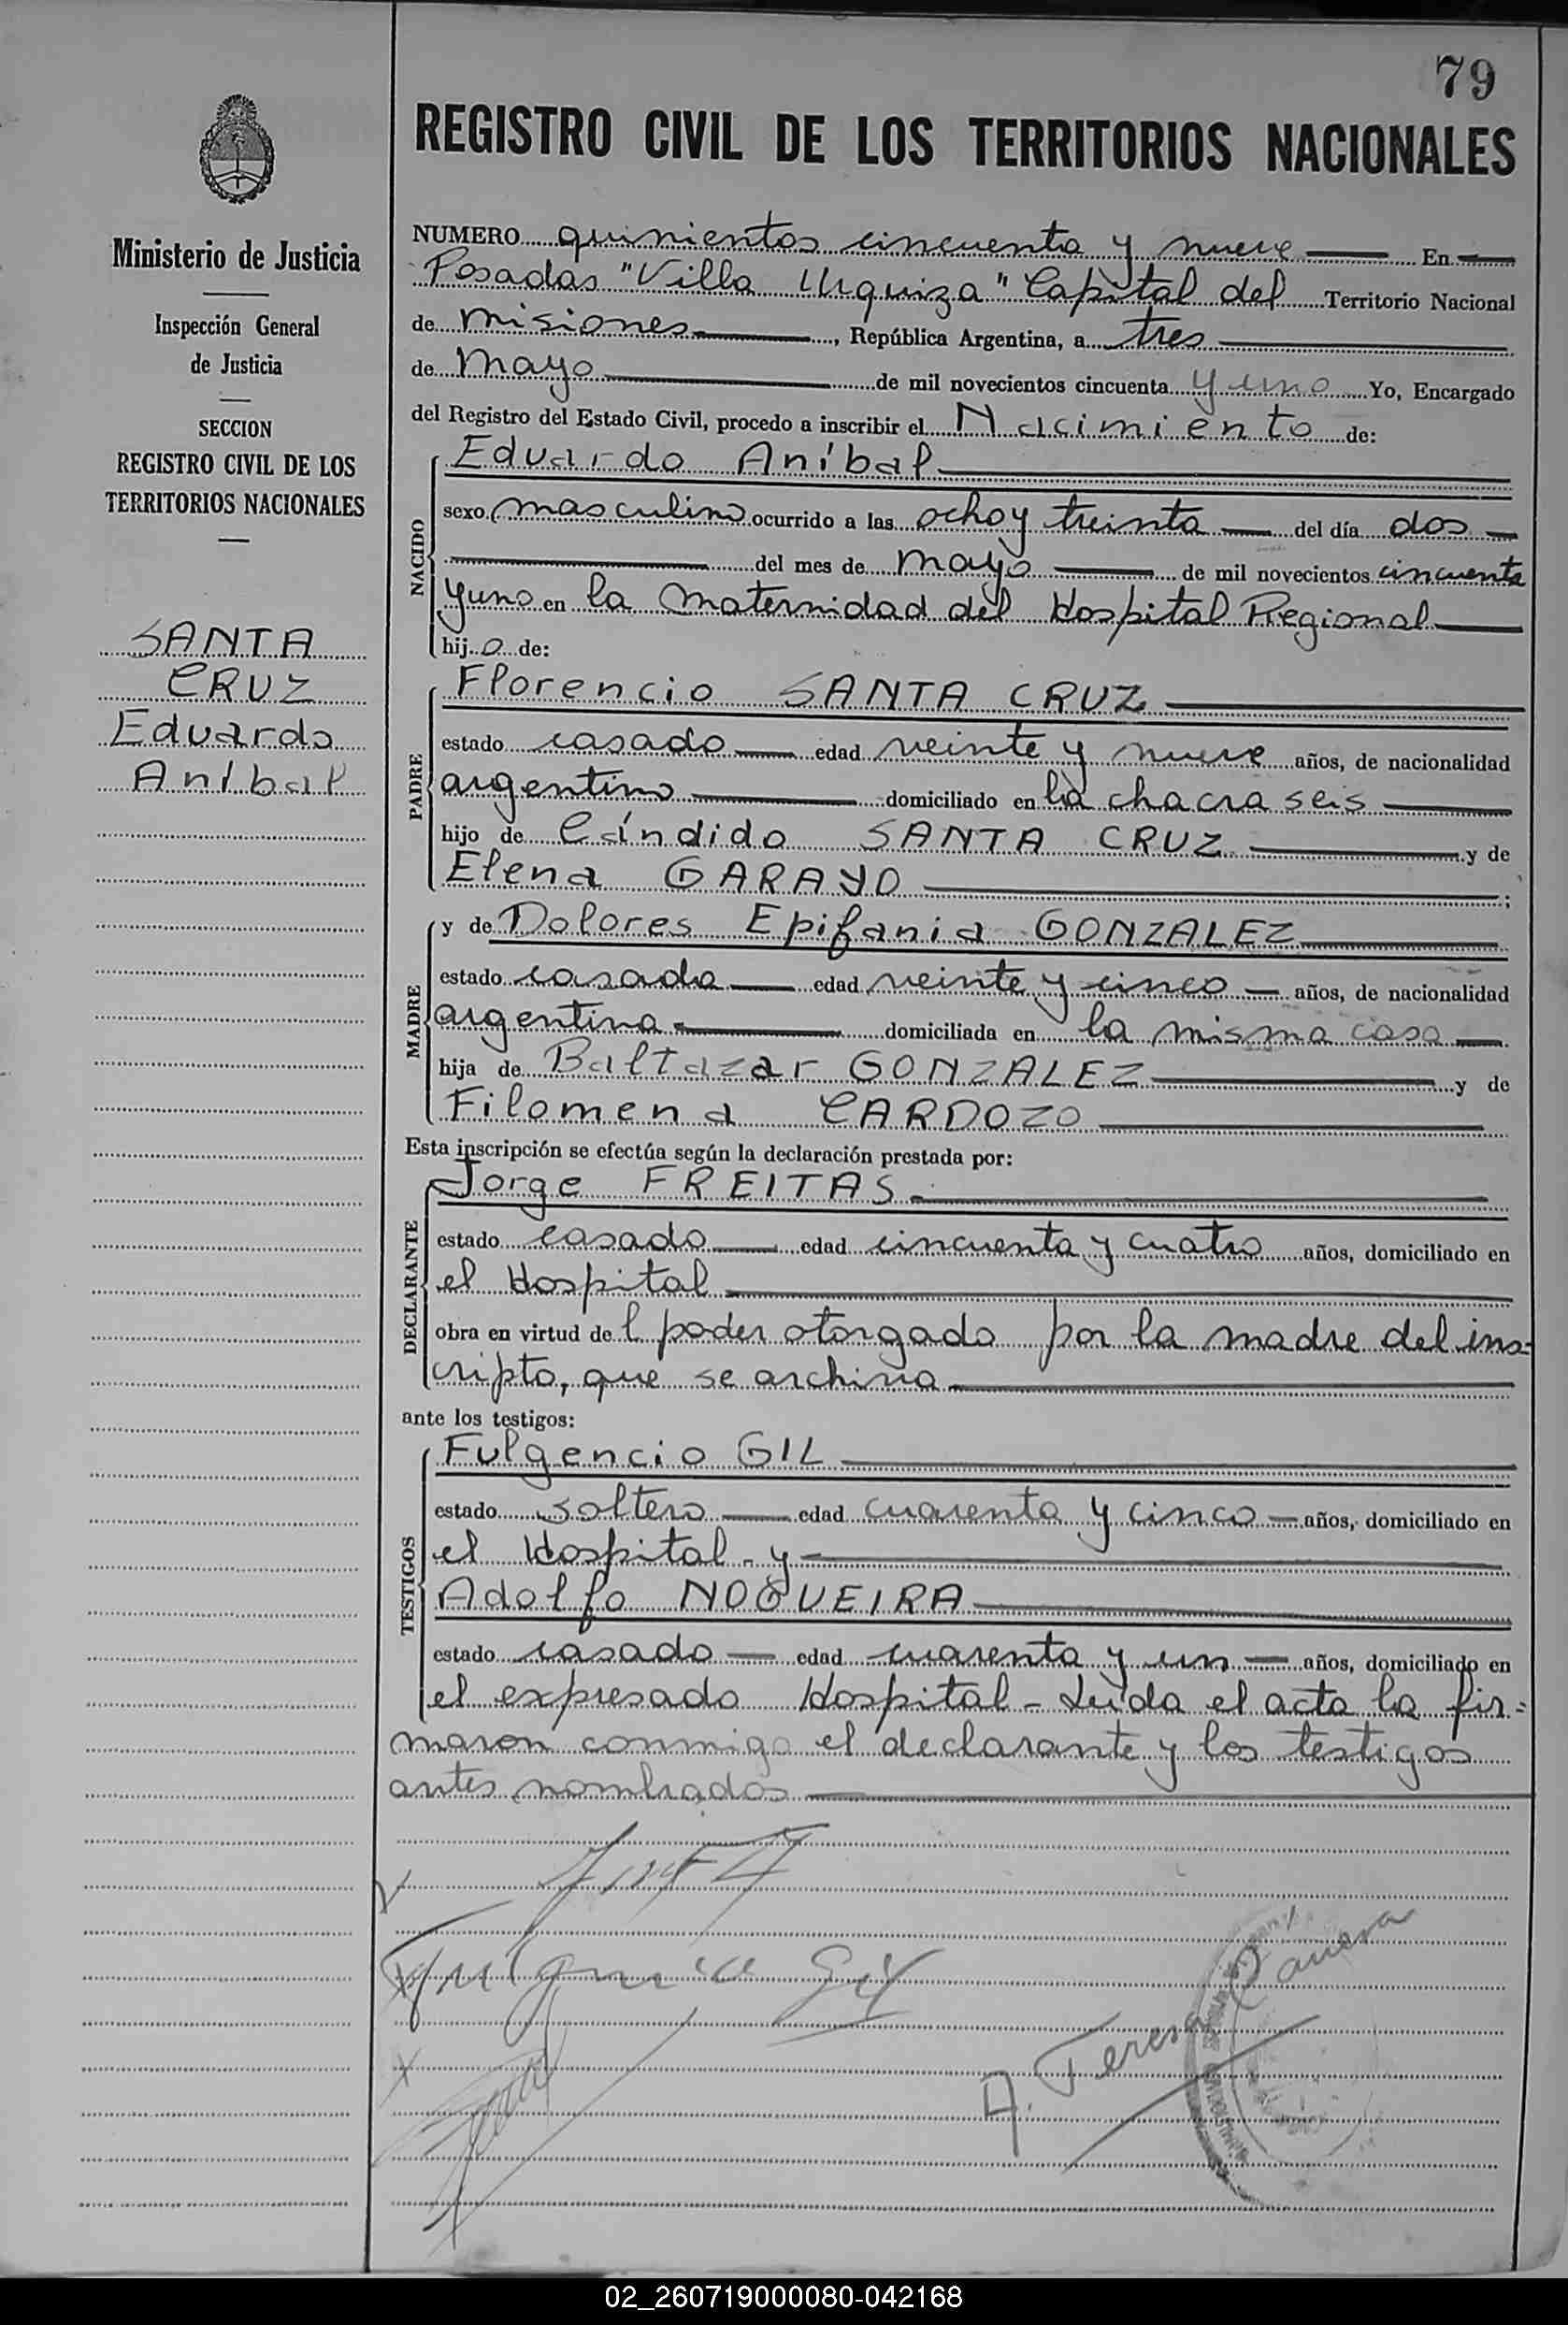 79
REGISTRO CIVIL DE LOS TERRITORIOS NACIONALES
Ministerio de Justicia
Inspección General
de Justicia
SECCION
REGISTRO CIVIL DE LOS
TERRITORIOS NACIONALES
SANTA
CRUZ
Eduardo
Aníbal
NUMERO quinientos cincuenta y nueve En
Posadas "Villa Urquiza" Capital del Territorio Nacional
de Misiones, República Argentina, a tres
de Mayo de mil novecientos cincuenta y uno Yo, Encargado
del Registro del Estado Civil, procedo a inscribir el Nacimiento de:
Eduardo Aníbal
NACIDO
sexo masculino ocurrido a las ocho y treinta del día dos
del mes de Mayo de mil novecientos cincuenta
y uno en la Maternidad del Hospital Regional
hijo de:
PADRE
Florencio SANTA CRUZ
estado casado edad veinte y nueve años, de nacionalidad
argentino domiciliado en la chacra seis
hijo de Cándido SANTA CRUZ y de
Elena GARAYO;
MADRE
y de Dolores Epifania GONZALEZ
estado casada edad veinte y cinco años, de nacionalidad
argentina domiciliada en la misma casa
hija de Baltazar GONZALEZ y de
Filomena CARDOZO
Esta inscripción se efectúa según la declaración prestada por:
DECLARANTE
Jorge FREITAS
estado casado edad cincuenta y cuatro años, domiciliado en
el Hospital
obra en virtud del poder otorgado por la madre del ins-
cripto, que se archiva
ante los testigos:
TESTIGOS
Fulgencio GIL
estado soltero edad cuarenta y cinco años, domiciliado en
el Hospital - y
Adolfo NOGUEIRA
estado casado edad cuarenta y un años, domiciliado en
el expresado Hospital - Leída el acta la fir=
maron conmigo el declarante y los testigos
antes nombrados
Fulgencio Gil
A. Teresa
02_260719000080-042168